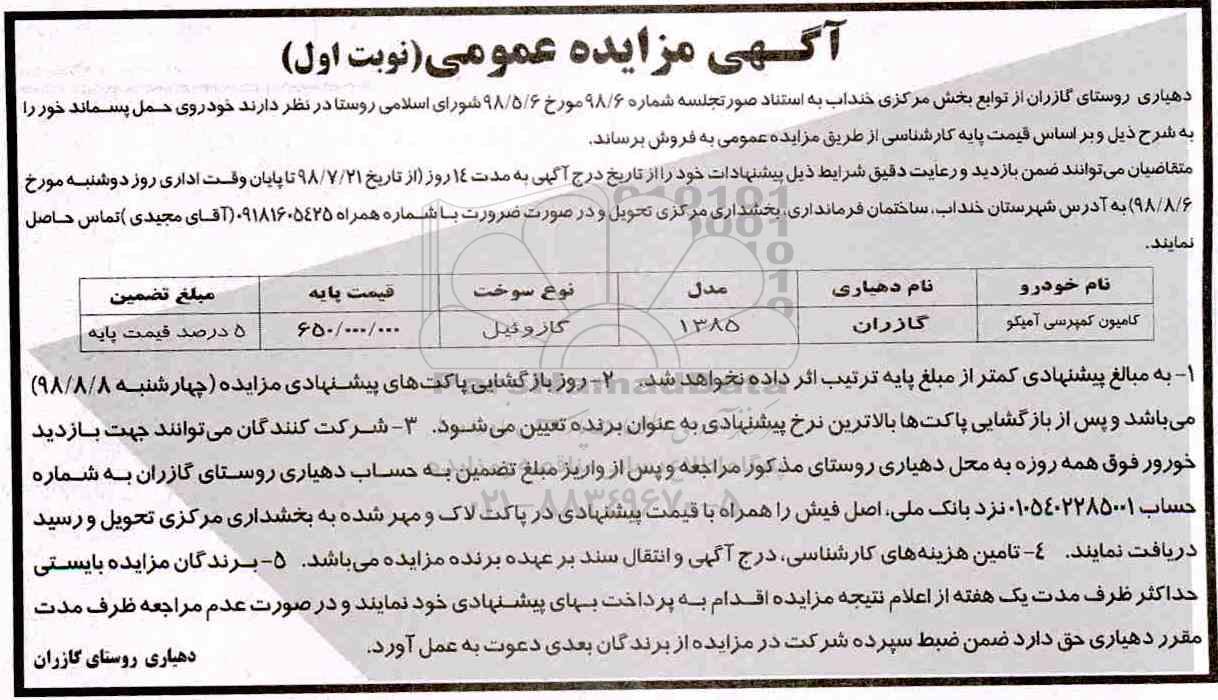 آگهی مزایده عمومی(نوبت اول)
دهیاری روستای گازران از توابع بخش مرکزی خنداب به استناد صورتجلسه شماره ۹۸/۶ مورخ ۹۸/۵/۶ شورای اسلامی روستا در نظر دارند خودروی حمل پسماند خور را
به شرح ذیل و بر اساس قیمت پایه کارشناسی از طریق مزایده عمومی به فروش برساند.
متقاضیان می‌توانند ضمن بازدید و رعایت دقیق شرایط ذیل پیشنهادات خود را از تاریخ درج آگهی به مدت ۱۴ روز (از تاریخ ۹۸/۷/۲۱ تا پایان وقت اداری روز دوشنبه مورخ
۹۸/۸/۶) به آدرس شهرستان خنداب، ساختمان فرمانداری، بخشداری مرکزی تحویل و در صورت ضرورت با شماره همراه ۰۹۱۸۱۶۰۵۴۲۵ (آقای مجیدی) تماس حاصل
نمایند.
نام خودرو نام دهیاری مدل نوع سوخت قیمت پایه مبلغ تضمین
کامیون کمپرسی آمیکو گازران ۱۳۸۵ گازوئیل ۶۵۰/۰۰۰/۰۰۰ ۵ درصد قیمت پایه
۱- به مبالغ پیشنهادی کمتر از مبلغ پایه ترتیب اثر داده نخواهد شد. ۲- روز بازگشایی پاکت‌های پیشنهادی مزایده (چهارشنبه ۹۸/۸/۸)
می‌باشد و پس از بازگشایی پاکت‌ها بالاترین نرخ پیشنهادی به عنوان برنده تعیین می‌شود. ۳- شرکت کنندگان می‌توانند جهت بازدید
خورور فوق همه روزه به محل دهیاری روستای مذکور مراجعه و پس از واریز مبلغ تضمین به حساب دهیاری روستای گازران به شماره
حساب ۰۱۰۵۴۰۲۲۸۵۰۰۱ نزد بانک ملی، اصل فیش را همراه با قیمت پیشنهادی در پاکت لاک و مهر شده به بخشداری مرکزی تحویل و رسید
دریافت نمایند. ۴- تامین هزینه‌های کارشناسی، درج آگهی و انتقال سند بر عهده برنده مزایده می‌باشد. ۵- برندگان مزایده بایستی
حداکثر ظرف مدت یک هفته از اعلام نتیجه مزایده اقدام به پرداخت بهای پیشنهادی خود نمایند و در صورت عدم مراجعه ظرف مدت
مقرر دهیاری حق دارد ضمن ضبط سپرده شرکت در مزایده از برندگان بعدی دعوت به عمل آورد.
دهیاری روستای گازران
ParsNamadData
۰۲۱-۸۸۳۴۹۶۷۰-۵